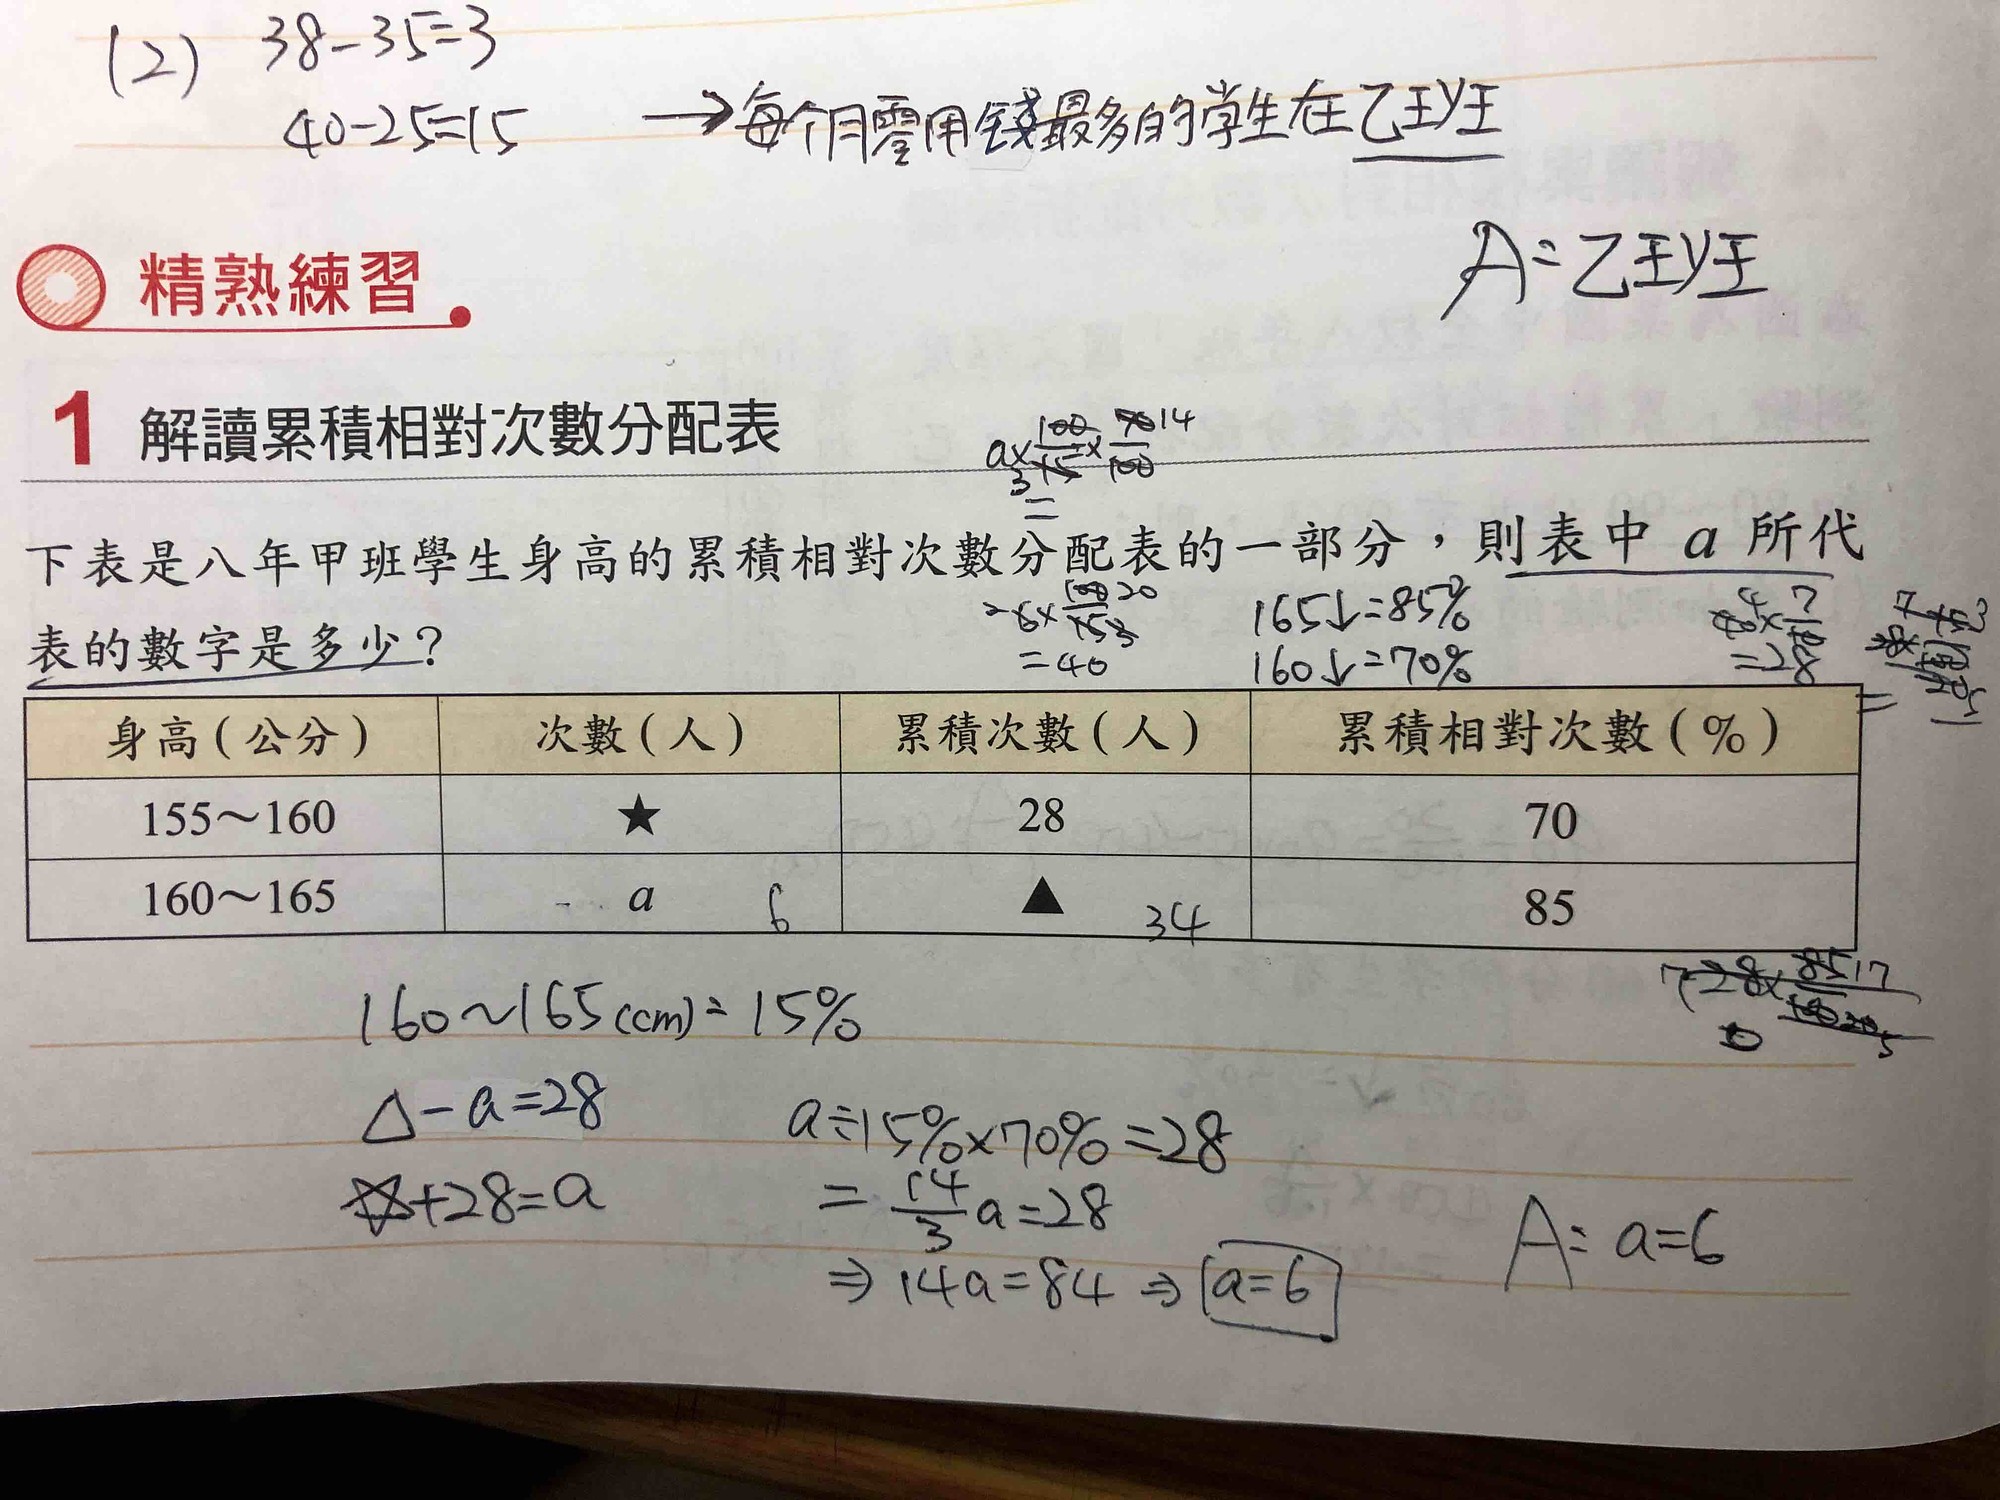 (2) 38-35=3
40-25=15 →每个月零用錢最多的学生在乙班
A=乙班
精熟練習
1 解讀累積相對次數分配表
a×100/15×70/100 14
3
=
下表是八年甲班學生身高的累積相對次數分配表的一部分，則表中 a 所代
表的數字是多少？
6×100/15 20
3
=40
165↓=85%
160↓=70%
=28
身高(公分) 次數(人) 累積次數(人) 累積相對次數(%)
155～160 ★ 28 70
160～165 a 6 ▲ 34 85
7 28×85/100 17
160~165(cm)=15%
△-a=28
☆+28=a
a÷15%×70%=28
=14/3a=28
⇒14a=84⇒a=6
A=a=6